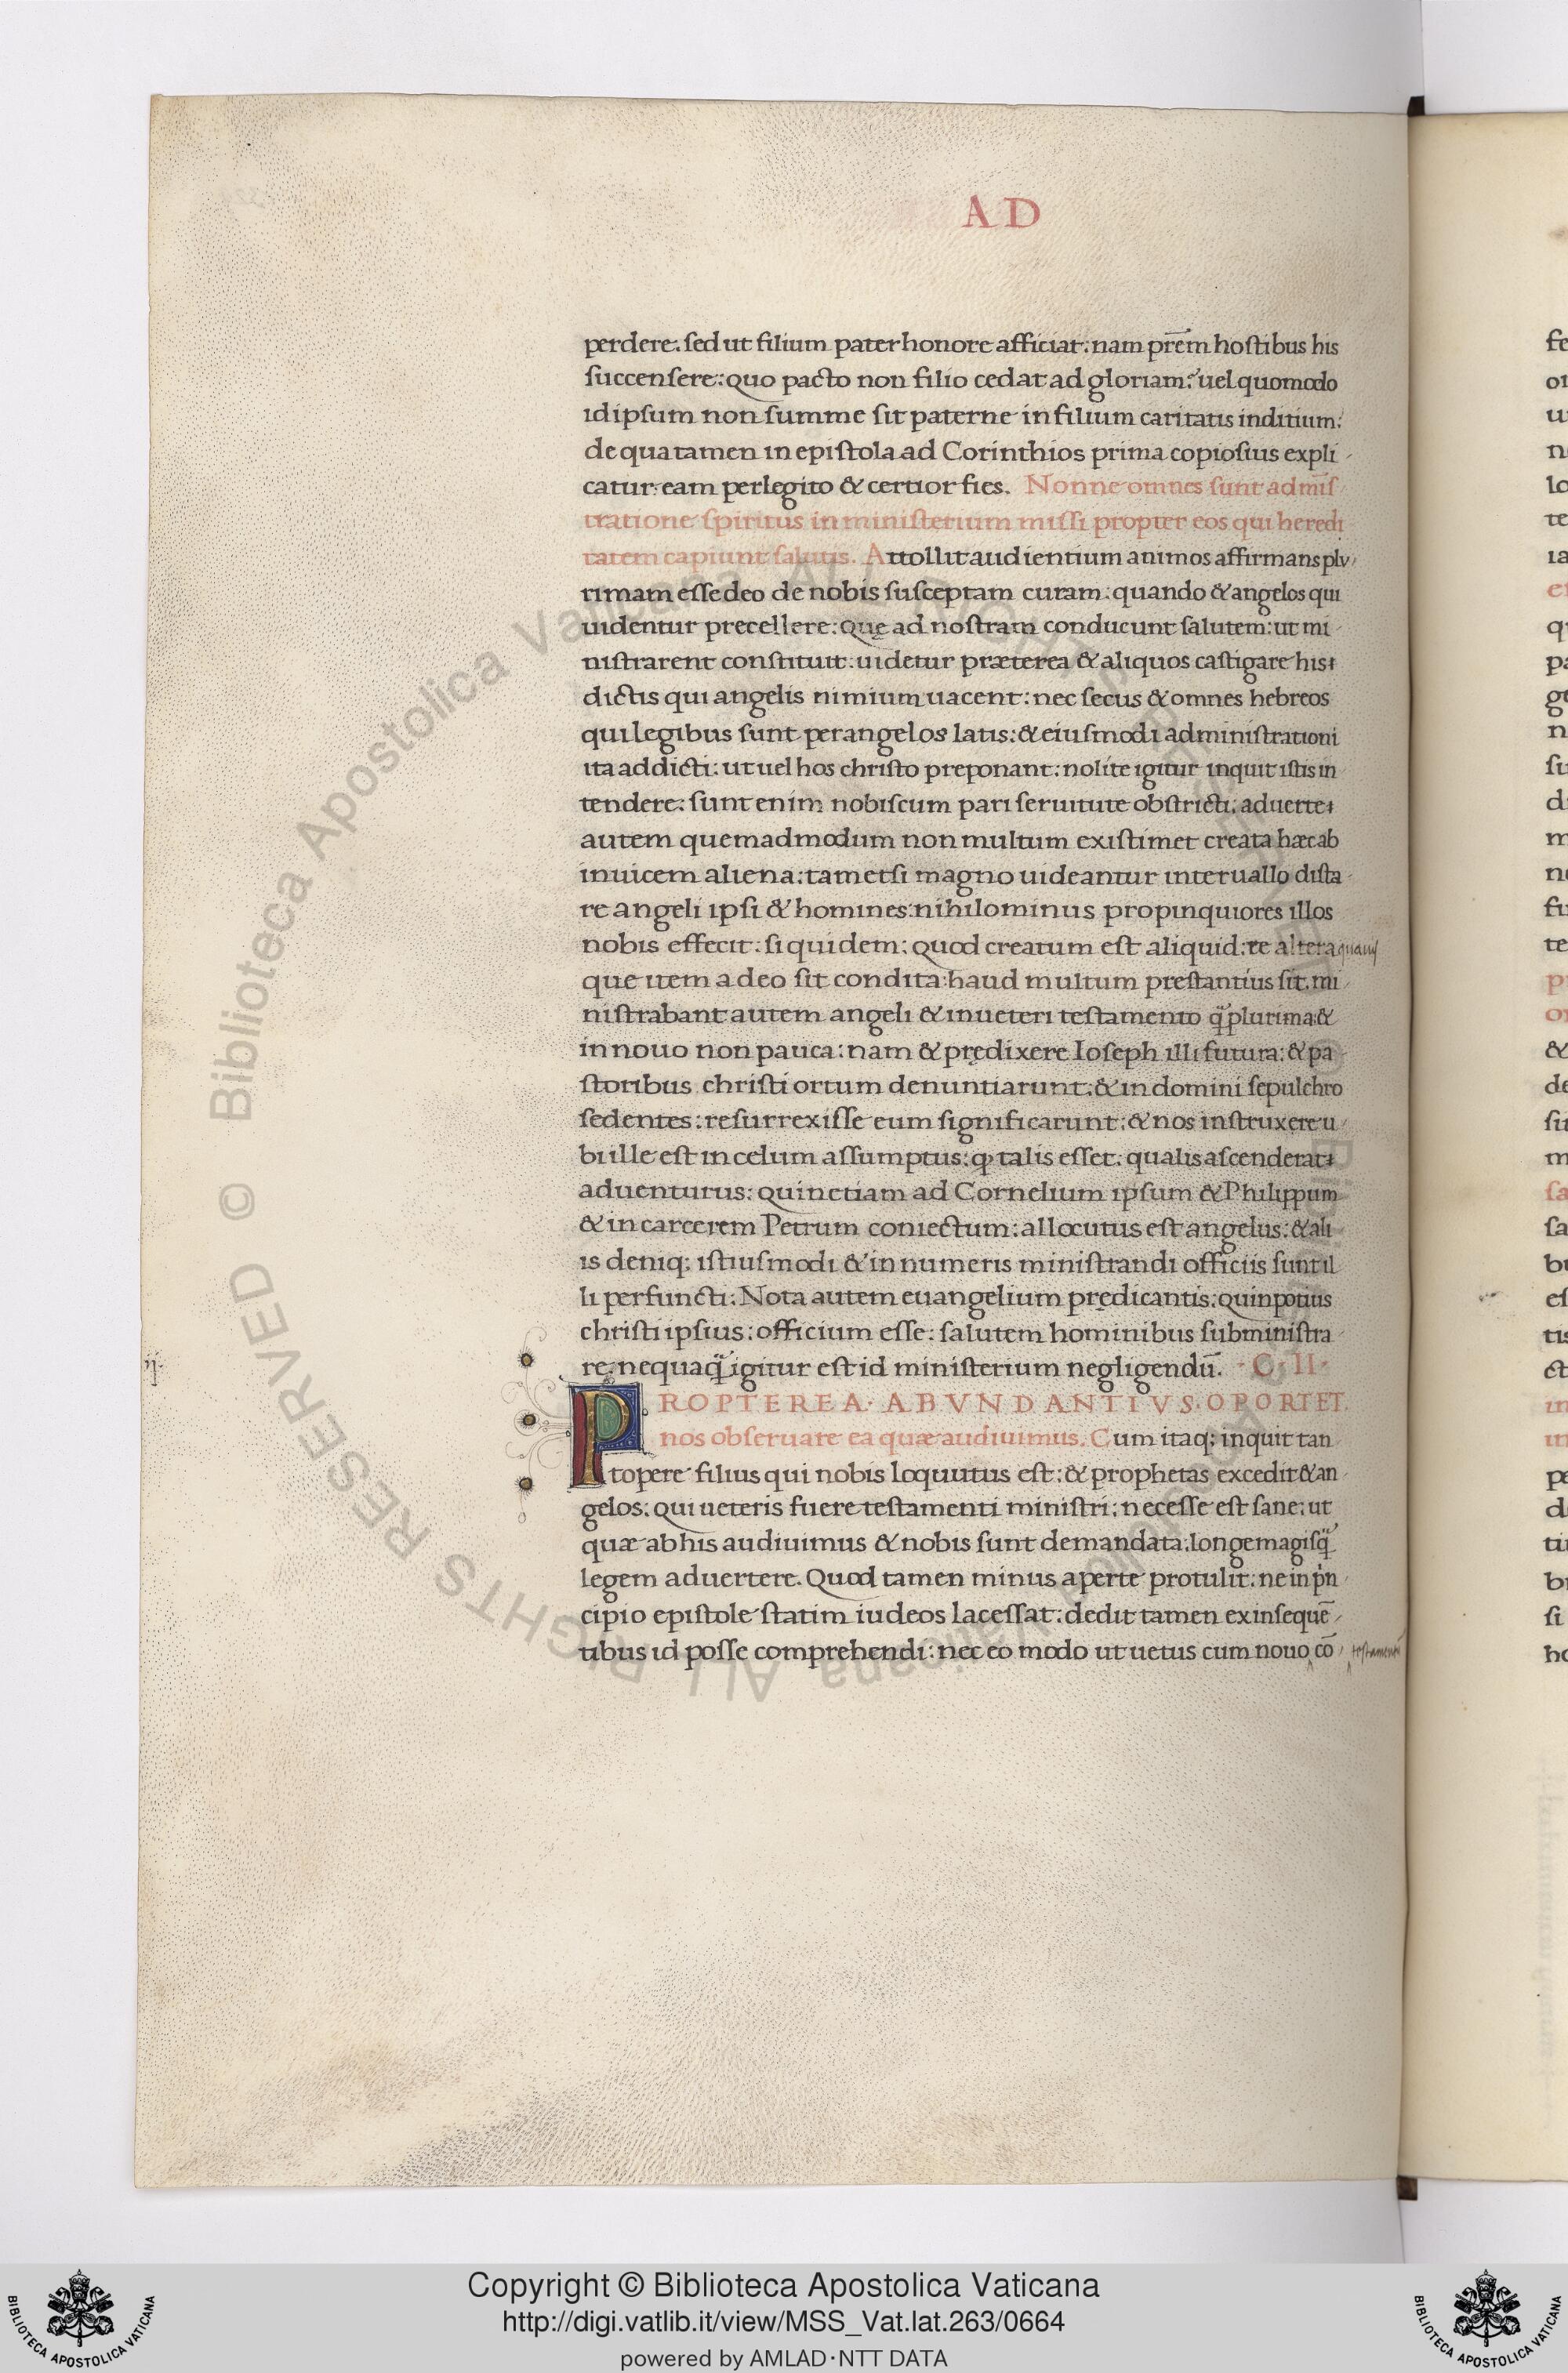 AD
perdere: sed ut filium pater honore afficiat: nam prēm hostibus his
succensere: quo pacto non filio cedat ad gloriam: uel quomodo
id ipsum non summe sit paterne in filium caritatis inditium:
de qua tamen in epistola ad Corinthios prima copiosius expli
catur: eam perlegito & certior fies. Nonne omnes sunt admīs
tratione spiritus in ministerium missi propter eos qui heredi
tatem capiunt salutis. Attollit audientium animos affirmans plu
rimam esse deo de nobis susceptam curam: quando & angelos qui
uidentur precellere: Quę ad nostram conducunt salutem: ut mi
nistrarent constituit: uidetur præterea & aliquos castigare his
dictis qui angelis nimium uacent: nec secus & omnes hebreos
qui legibus sunt per angelos latis: & eiusmodi administrationi
ita addicti: ut uel hos christo preponant: nolite igitur inquit istis in
tendere: sunt enim nobiscum pari seruitute obstricti: aduerte
autem quemadmodum non multum existimet creata hæc ab
inuicem aliena: tametsi magno uideantur interuallo dista
re angeli ipsi & homines: nihilominus propinquiores illos
nobis effecit: siquidem: quod creatum est aliquid: re altera
que item a deo sit condita: haud multum prestantius sit. mi
nistrabant autem angeli & in ueteri testamento q̃plurima: &
in nouo non pauca: nam & prędixere Ioseph illi futura: & pa
storibus christi ortum denuntiarunt: & in domini sepulchro
sedentes: resurrexisse eum significarunt: & nos instruxere u
bi ille est in celum assumptus: ꝙ talis esset: qualis ascenderat
aduenturus: quinetiam ad Cornelium ipsum & Philippum
& in carcerem Petrum coniectum: allocutus est angelus: & ali
is deniq; istiusmodi & innumeris ministrandi officiis sunt il
li perfuncti: Nota autem euangelium prędicantis: quinpotius
christi ipsius: officium esse: salutem hominibus subministra
re: nequaq̃ igitur est id ministerium negligendū. · C · II ·
ij.
PROPTEREA · ABVNDANTIVS · OPORTET.
nos obseruare ea quæ audiuimus. Cum itaq; inquit tan
topere filius qui nobis loquutus est: & prophetas excedit & an
gelos: qui ueteris fuere testamenti ministri: necesse est sane: ut
quæ ab his audiuimus & nobis sunt demandata: longe magis q̃
legem aduertere. Quod tamen minus aperte protulit: ne in pn
cipio epistole statim iudeos lacessat: dedit tamen ex insequē
tibus id posse comprehendi: nec eo modo ut uetus cum nouo cō
Copyright © Biblioteca Apostolica Vaticana
http://digi.vatlib.it/view/MSS_Vat.lat.263/0664
powered by AMLAD·NTT DATA
BIBLIOTECA APOSTOLICA VATICANA
BIBLIOTECA APOSTOLICA VATICANA